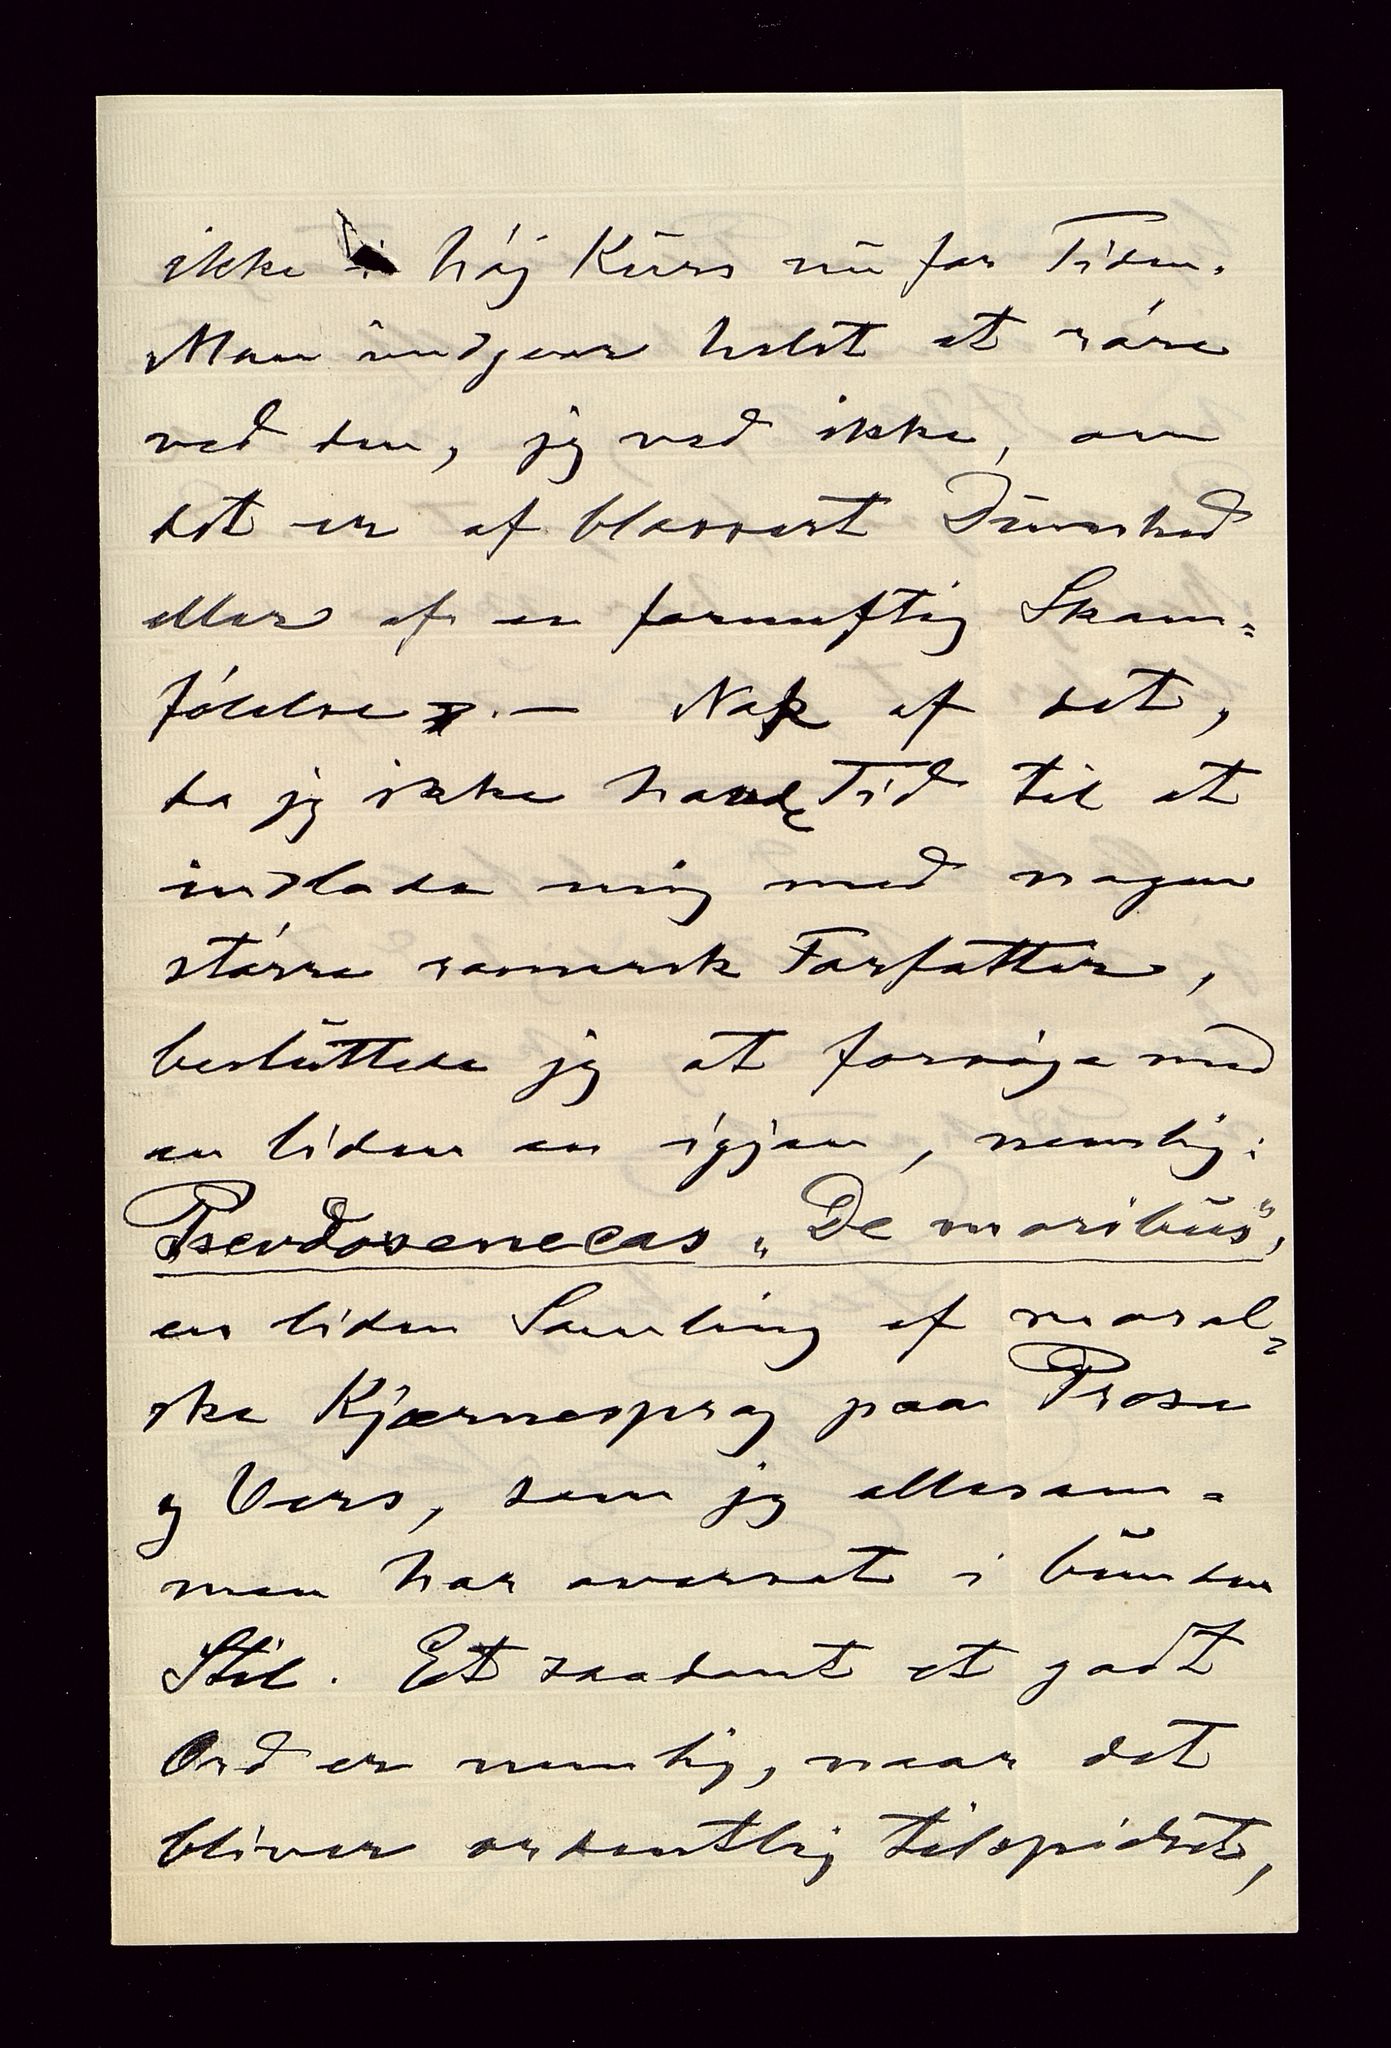 ikke i høj Kurs nu for Tiden.
Man undgaar helst at røre
ved den, jeg ved ikke, om
det er af blasert Dumhed
eller af en fornuftig Skam=
følelse. — Nok af det,
da jeg ikke havde Tid til at
indlade mig med nogen
større romersk Forfatter,
besluttede jeg at forsøge med
en liden en igjen, nemlig:
Psevdosenecas „De moribus",
en liden Samling af moral=
ske Kjærnesprog paa Prosa
og Vers, som jeg allesam=
men har oversat i bunden
Stil. Et saadant et godt
Ord er nemlig, naar det
bliver ordentlig tilspidset,